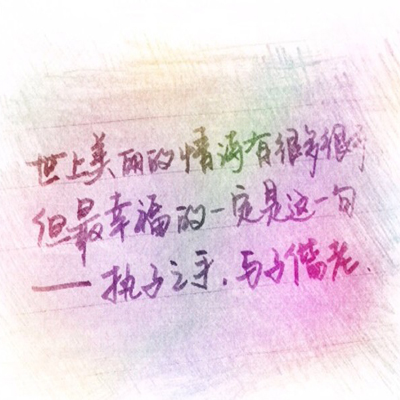 世上美丽的情诗有很多很多
但最幸福的一定是这一句
—— 执子之手，与子偕老.